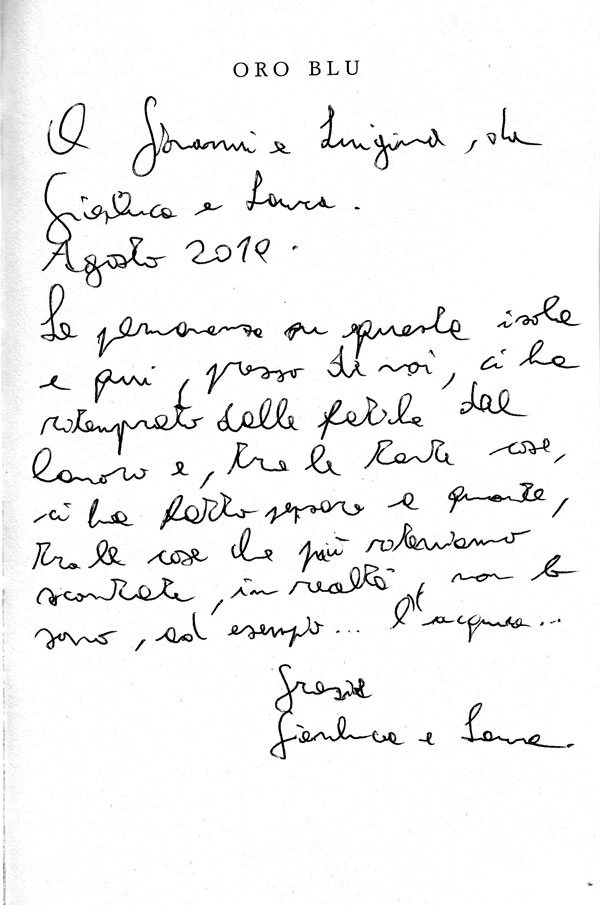 ORO BLU
A Gianni e Luigina, da
Gianluca e Laura.
Agosto 2019.
La permanenza su questa isola
e qui, presso di voi, ci ha
ritemprato dalle fatiche dal
lavoro e, tra le tante cose,
ci ha fatto pensare a quante,
tra le cose che più riteniamo
scontate, in realtà, non lo
sono, ad esempio... l'acqua...
Grazie
Gianluca e Laura.